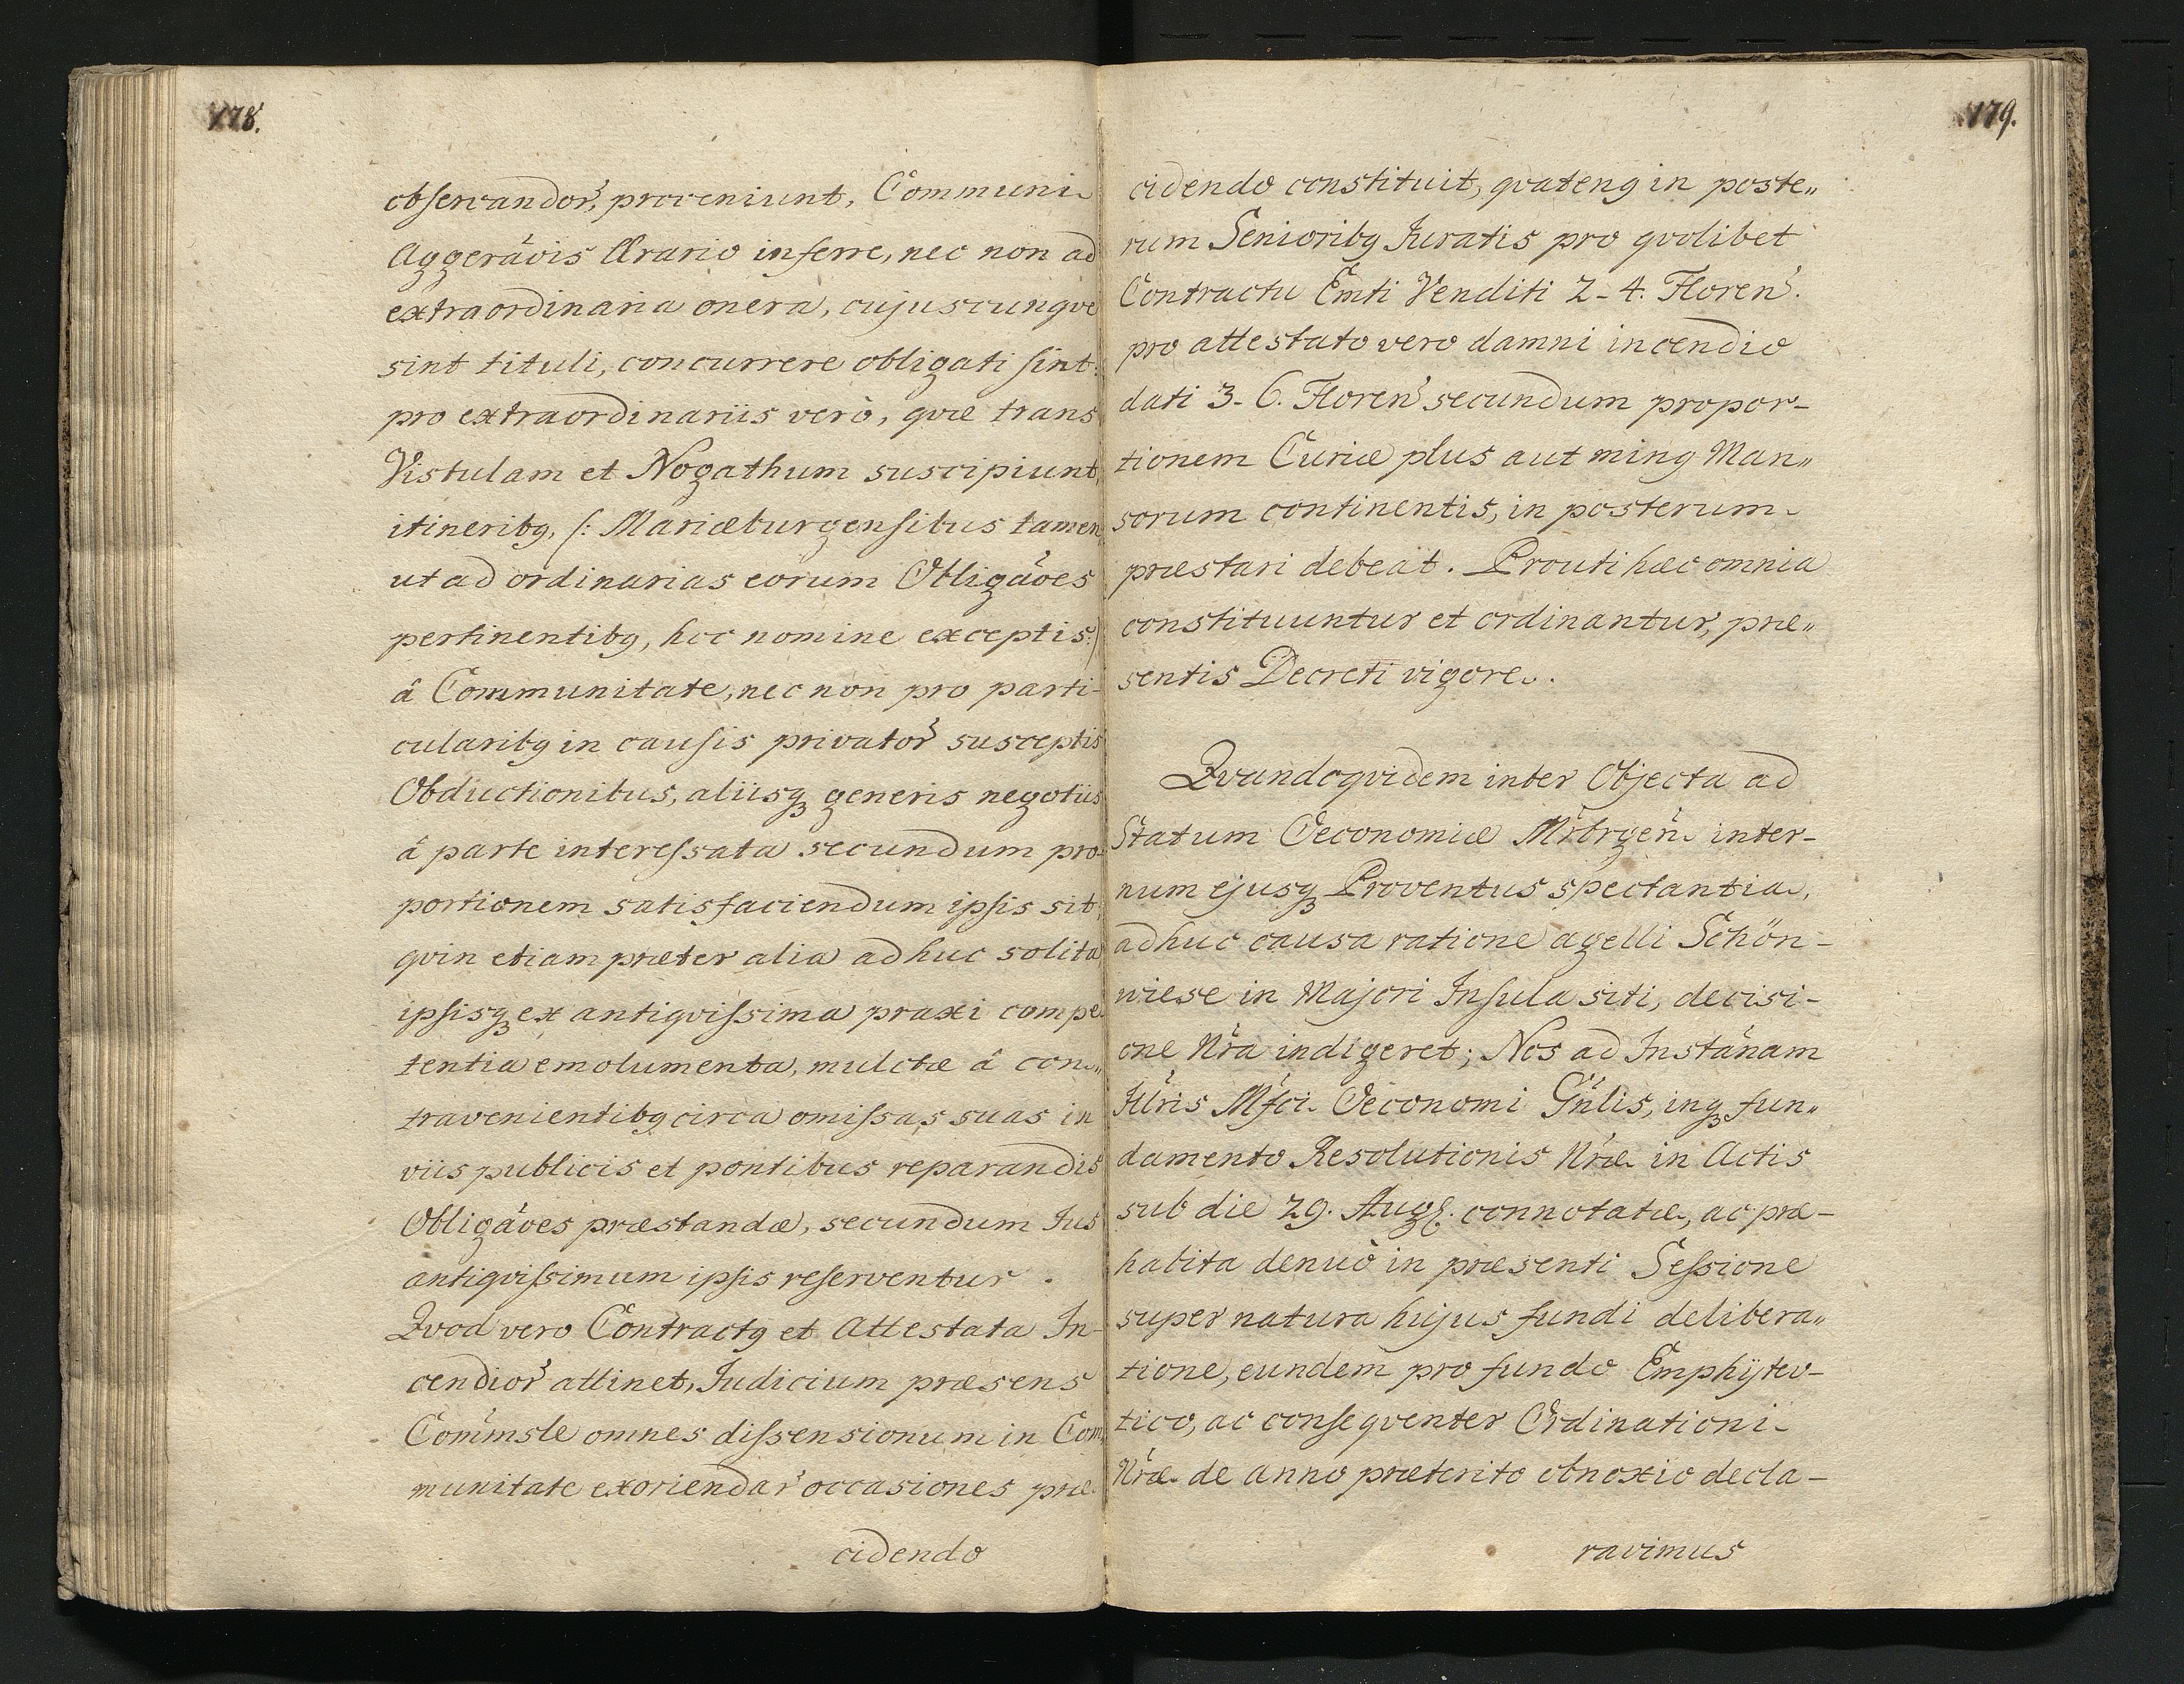 178.
obſervandor̃, proveniunt, Communi
Aggerãvis Ærario inferre, nec non ad
extraordinaria onera, cujuscunqve
sint tituli, concurrere obligati ſint.
pro extraordinariis verò, qvæ trans
Vistulam et Nogathum suscipiunt,
itineribꝯ, /: Mariæburgenſibus tamen
ut ad ordinarias eorum Obligãoes
pertinentibꝯ, hoc nomine exceptis :/
â Communitate, nec non pro parti-
cularibꝯ in cauſis privator̃ susceptis
Obductionibus, aliisqꝫ generis negotiis
â parte intereſsata secundum pro-
portionem satisfaciendum ipſis sit,
qvin etiam præter alia adhuc solita
ipſisqꝫ ex antiqviſsima praxi compe-
tentia emolumenta, mulctæ â con„
travenientibꝯ circa omiſsas suas in
viis publicis et pontibus reparandis
Obligãoes præstandæ, secundum Jus
antiqviſsimum ipſis reſerventur.
Qvod vero Contractꝯ et Attestata In-
cendior̃ attinet, Judicium præsens
Com̃msle omnes diſsensionum in Com„
munitate exoriendar̃ occasiones præ-
cidendo
179.
cidendo constituit, qvatenꝯ in poste„
rum Senioribꝯ Juratis pro qvolibet
Contractu Emti Venditi 2-4. Floren̄.
pro attestato vero damni incendio
dati 3-6. Floren̄ secundum propor-
tionem Curiæ plus aut minꝯ Man„
sorum continentis, in posterum
præstari debeat. Prouti hæc omnia
constituuntur et ordinantur, præ„
sentis Decreti vigore.
Qvandoqvidem inter Objecta ad
Statum Oeconomiæ Mrbrgen̄ inter-
num ejusqꝫ Proventus spectantia,
adhuc causa ratione agelli Schön-
wiese in Majori Inſula siti, decisi-
one Nr̃a indigeret; Nos ad Instãnam
Illr̃is Mfci. Oeconomi Gñlis, inqꝫ fun„
damento Resolutionis Nr̃æ in Actis
sub die 29. Augſ. connotatæ, ac præ-
habita denuò in præsenti Seſsione
super natura hujus fundi delibera„
tione, eundem pro fundo Emphÿtev-
tico, ac conſeqventer Ordinationi
Nr̃æ de anno præterito obnoxio decla-
ravimus